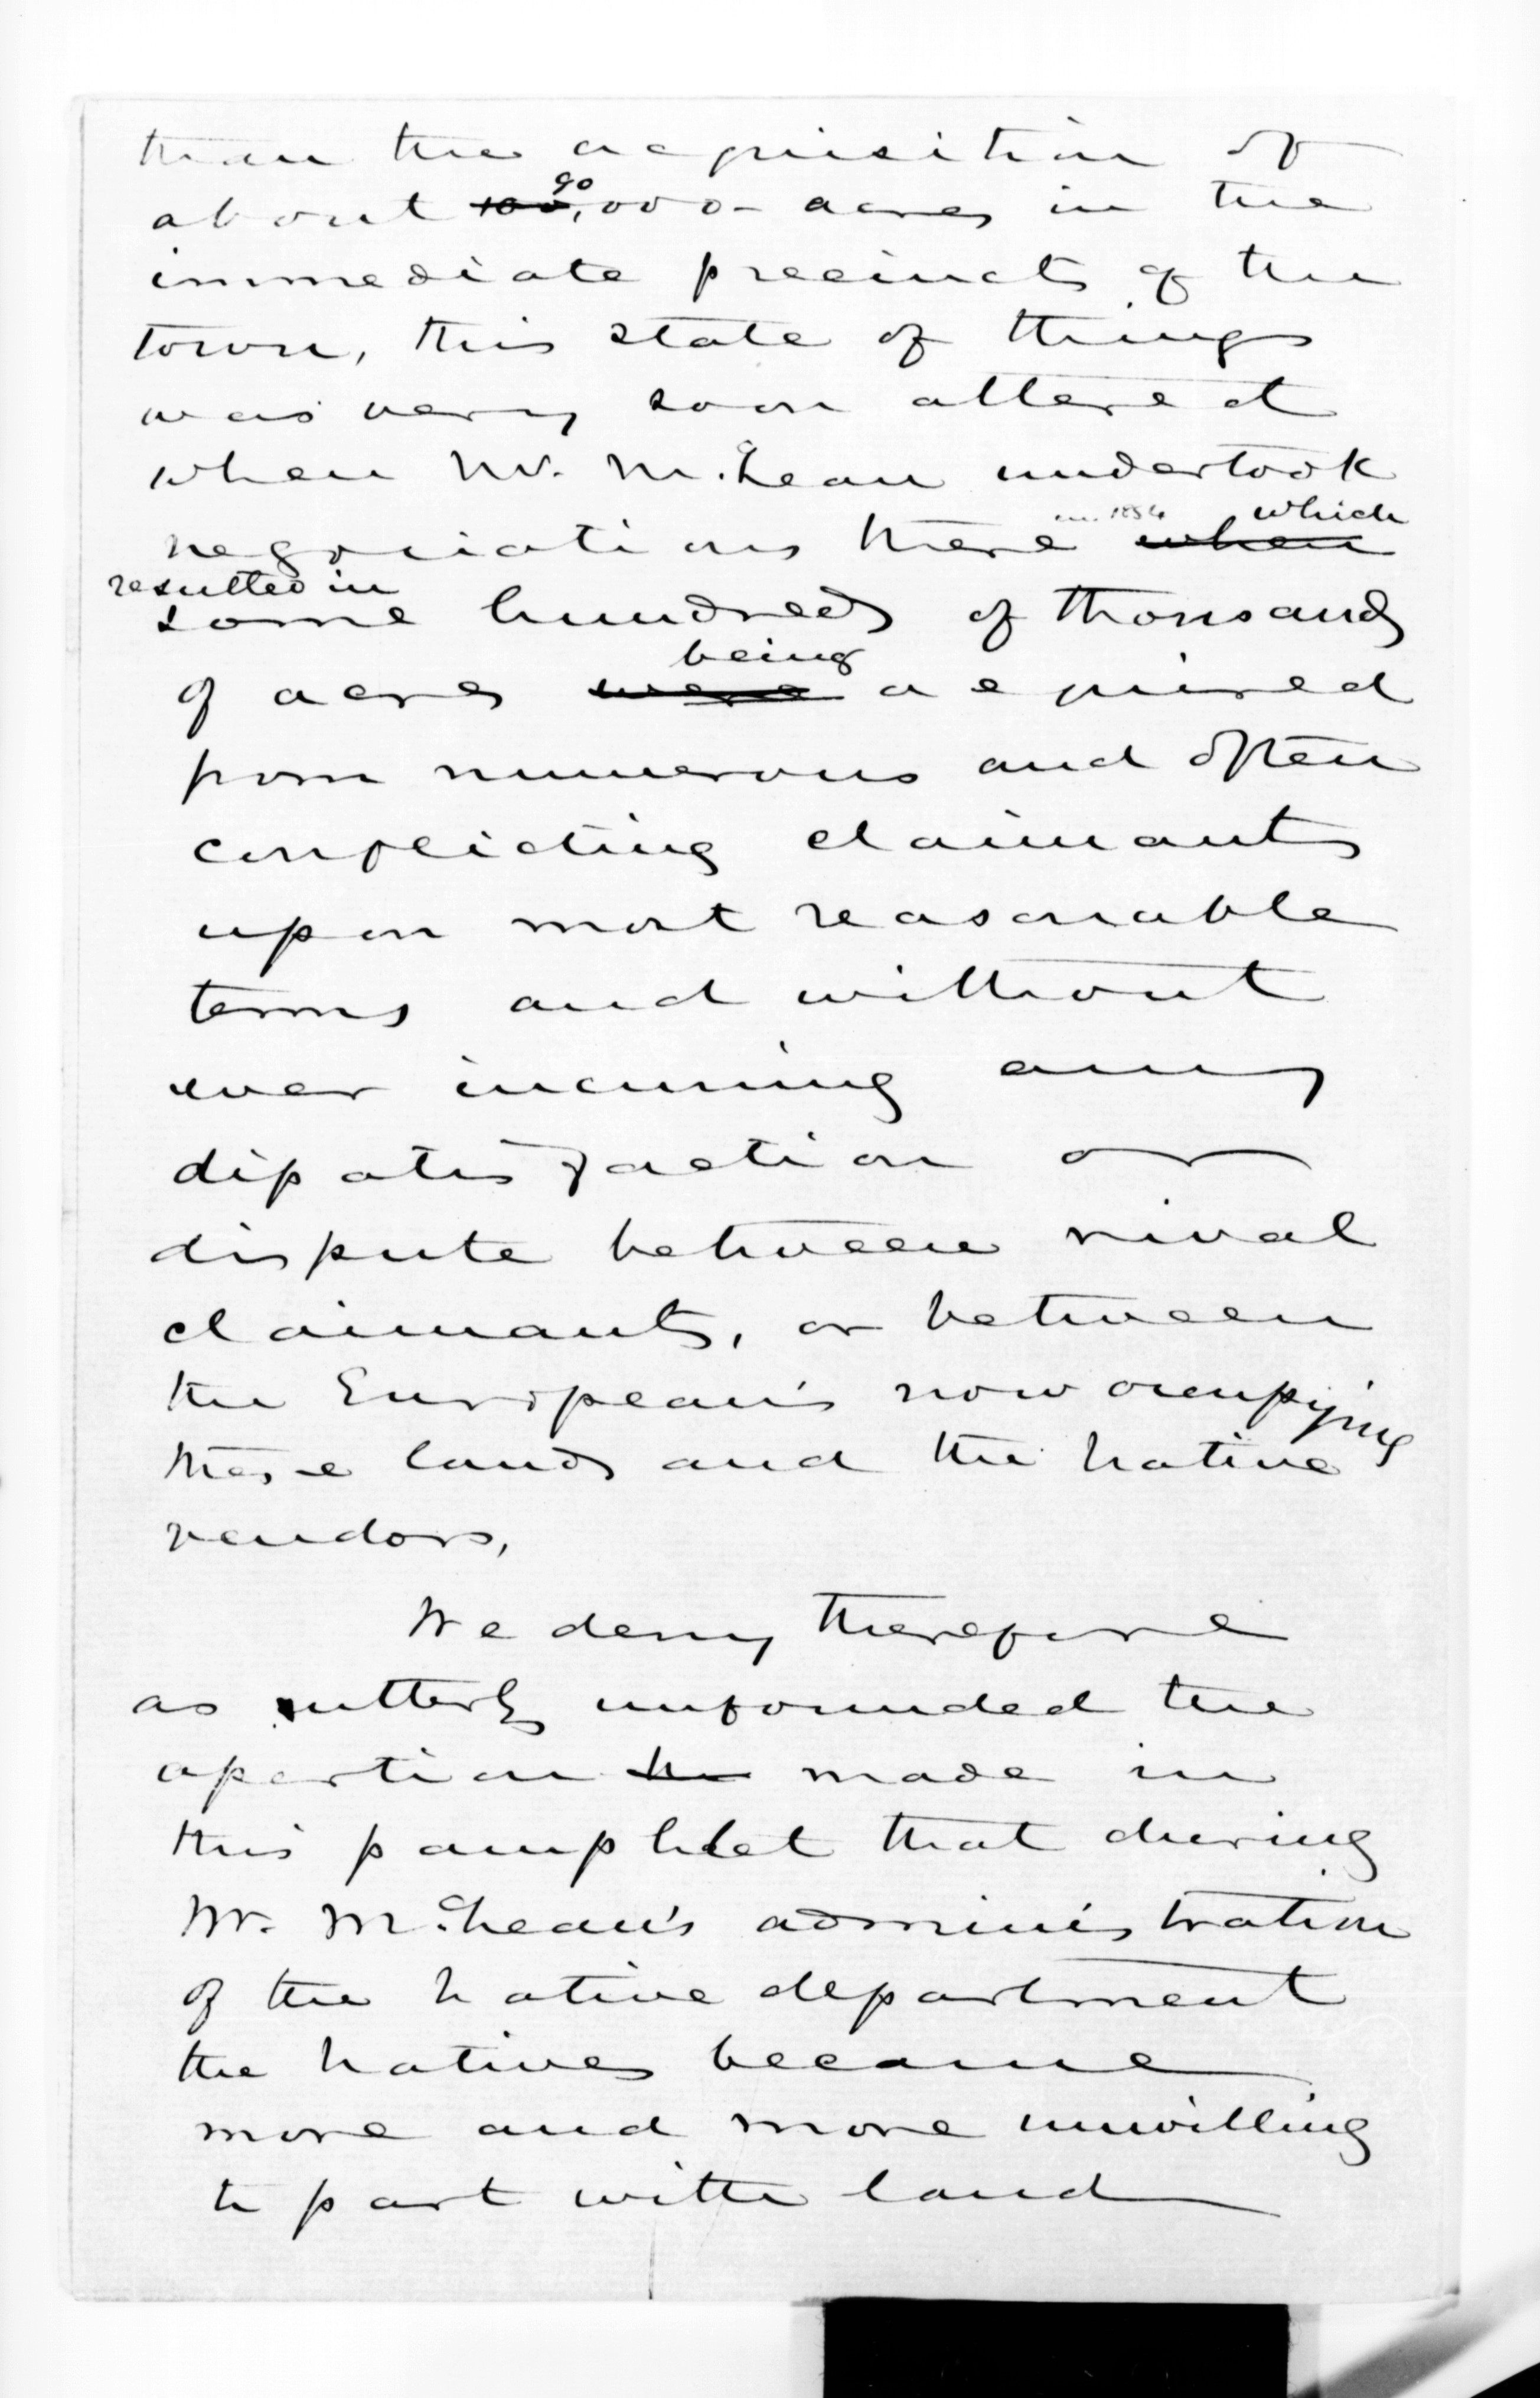 than the acquisition of
90
about 100,000 acres in the
immediate precincts of the
town, this state of things
was very soon altered
when Mr. McLean undertook
in 1854 which
negociations there when
resulted in
some hundreds of thousands
being
of acres were acquired
from numerous and often
conflicting claimants
upon most reasonable
terms and without
ever incurring any
dissatisfaction or
dispute between rival
claimants, or between
the European's now occupying
these lands and the native
vendors,
We deny therefore
as utterly unfounded the
assertion made in
this pamphlet that during
Mr. McLean's administration
of the native department
the natives became
more and more unwilling
to part with land